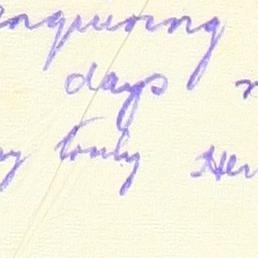 enquiring
days
truly Her